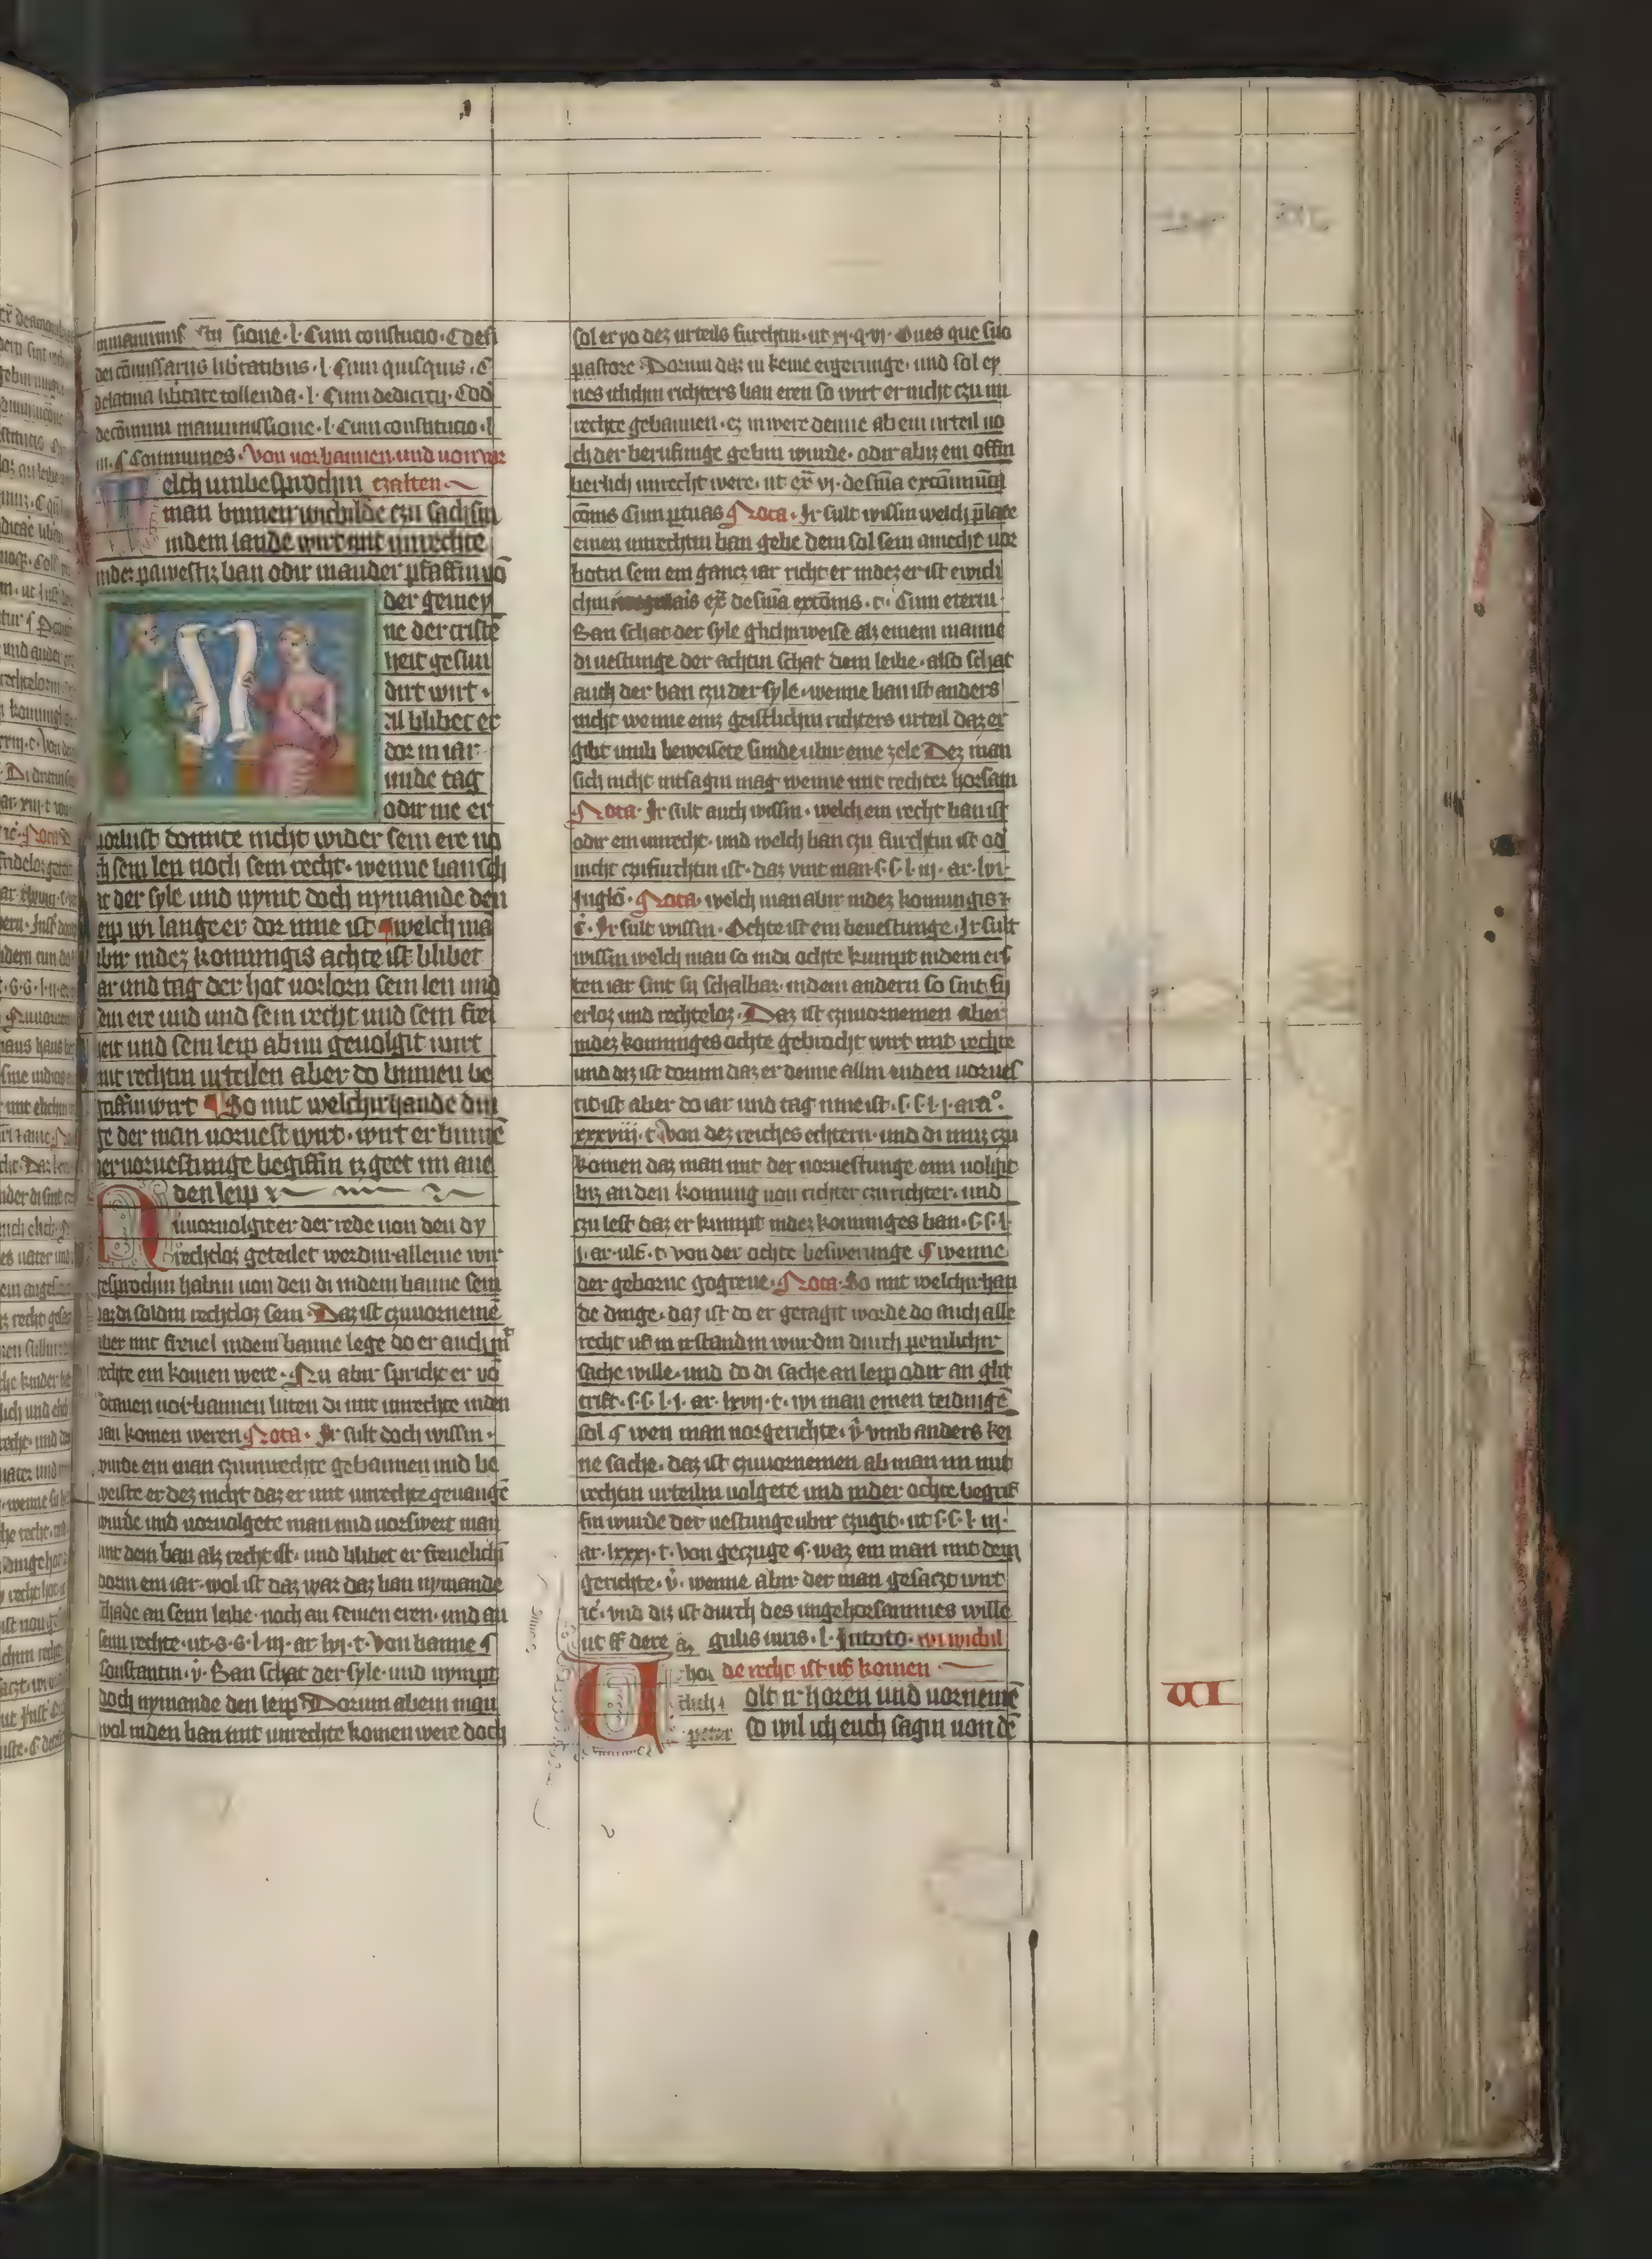 sione · l · Cum constitucio · C de fi
dei cōmissarijs libertatibus · l · Cum quisquis · C
de latina libertate tollenda · l · Cum dedicitij · Cod
de cōmuni manumissione · l · Cum constitucio · l
C Communes · Von vorbannen und von vor
elch umbesprochin czalten
man binnen wichilde czu sachsin
in dem lande wirt mit unrechte
in dez pawestiz ban odir in ander pfaffin vō
der gemey
ne der cristē
heit gesun
dirt wirt ·
al blibet er
dor in iar
unde tag
odir me er
vorlust domite nicht wider sein ere no
ch sein len noch sein recht · wenne ban sch
at der syle und nymt doch nymande den
leip wi lange er dor inne ist welch mā
abir in dez konnigis achte ist blibet
iar und tag der hot vorlorn sein len und
sein ere und und sein recht und sein frei
heit und sein leip ab im gevolgit wirt
mit rechtin urteilen aber do binnen be
graffin wirt So mit welchirhande din
ge der man vorvest wirt · wirt er binnē
der vorvestunge begriffin iz geet im ane
den leip
Nu vorvolgit er der rede von den dy
rechtloz geteilet werdin alleine wir
gesprochin habin von den di in dem banne sein
daz di soldin rechtloz sein · Daz ist czuvornemē
aber mit frevel in dem banne lege do er auch mit
rechte ein komen were · Nu abir spricht er vō
vorbannen luten di mit unrechte in den
ban komen weren Nota · Ir sult doch wissin ·
wurde ein man czu unrechte gebannen und be
weiste er dez nicht daz er mit unrechte gevangē
wurde und vorvolgete man und vorsweet man
mit dem ban alz recht ist · und blibet er frevelich
dorin ein iar · wol ist daz war daz ban nymande
schade an seim leibe · noch an seinen eren · und an
seim rechte · ut · s · s · l · iij · ar · lxij · t · Von banne ¶
Constantin · v̄ · Ban schat der syle · und nympt
doch nymande den leip Dorum ab ein man
wol in den ban mit unrechte komen were doch
sol er yo dez urteils furchtin · ut xj · q · vj · Oues que suo
pastore Dorum daz iu keine ergerunge · und sol ey
nes itlichin richters ban eren so wirt er nicht czu un
rechte gebannen · ez inwere denne ab ein urteil no
ch der berufinge gebin wurde · odir abiz ein offin
berlich unrecht were · ut ex̄ vj · de sn̄ia excōmunica
cōnis Cum ꝑ tuas Nota · Ir sult wissin welch p̄late
einen unrechtin ban gebe dem sol sein amecht vor
botin sein ein gancz iar richt er in dez er ist ewich
chin ex̄ de sn̄ia excōmis · c · Cum eterni ·
Ban schat der syle glichirweise alz einem manne
di vestunge der achtin schat dem leibe · also schat
auch der ban czu der syle · wenne ban ist anders
nicht wenne einz geistlichin richters urteil daz er
gibt umb beweisete sunde ubir eine zele Dez man
sich nicht intsagin mag wenne mit rechter horsam
Nota · Ir sult auch wissin · welch ein recht ban ist
odir ein unrecht · und welch ban czu furchtin ist od
nicht czufurchtin ist · daz vint man · s · s · l · iij · ar · lxi ·
in glo · Nota · welch man abir in dez konnigis ⁊
c̄ · Ir sult wissin · Ochte ist ein bevestunge · Ir sult
wissin welch man so in di ochte kumpt in dem ers
ten iar sint sy schalbar · in dem andern so sint sy
erloz und rechteloz · Daz ist czuvornemen aber
in dez konniges ochte gebrocht wirt mit rechte
und diz ist dorum daz er denne allin enden vorves
tit ist aber do iar und tag inne ist · s · s · l · j · ara° ·
xxxviij · t · Von dez reiches echtern · und di muz czu
komen daz man mit der vorvestunge eim volgit
biz an den konnig von richter czu richter · und
czu lest daz er kumpt in dez konniges ban · s · s · l ·
j · ar · ulf · t · von der ochte beswerunge ¶ wenne
der geborne gogreve · Nota · So mit welchirhan
de dinge · daz ist do er getagit worde do auch alle
recht uf in irstandin wurdin durch peinlichir
sache wille · und do di sache an leip odir an glit
trift · s · s · l · j · ar · lxvij · t · wi man einen teidingē
sol ¶ wen man vorgerichte · v̄ · vmb anders kei
ne sache · daz ist czuvornemen ab man im mit
rechtin urteiln volgete und in der ochte begrif
fin wurde der vestunge ubir czugit · ut · s · s · l · iij ·
ar · lxxxj · t · Von geczuge ¶ · waz ein man mit dem
gerichte · v̄ · wenne abir der man gesaczt wirt
⁊c̄ · vnd diz ist durch des ungehorsammes wille
ut ff de re gulis iuris · l · In toto · wi wichil
de recht ist uf komen
olt ir horen und vornemē
so wil ich euch sagin von dē
VI